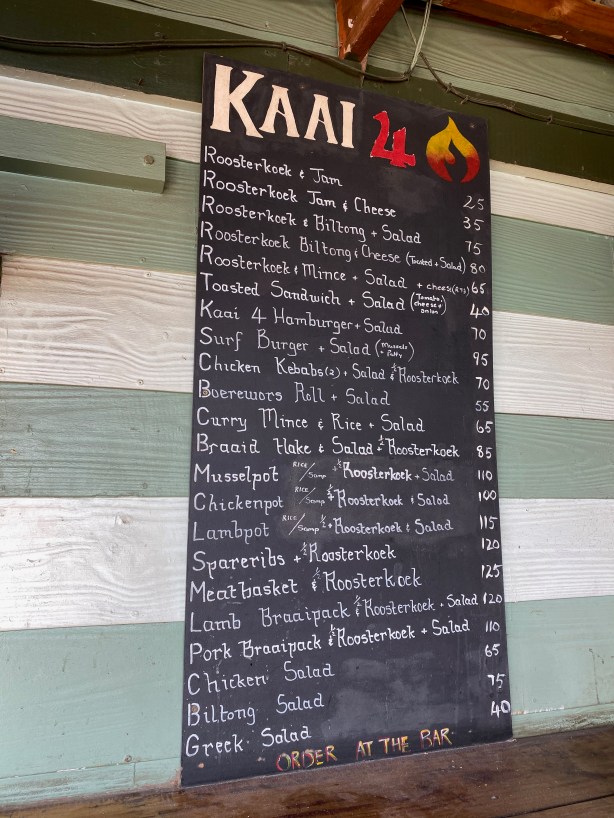 KAAI 4
Roosterkoek & Jam 25
Roosterkoek Jam & Cheese 35
Roosterkoek & Biltong + Salad 75
Roosterkoek Biltong & Cheese (Toasted + Salad) 80
Roosterkoek & Mince + Salad + cheese 65
Toasted Sandwich + Salad (Tomato, cheese + onion) 40
Kaai 4 Hamburger + Salad 70
Surf Burger + Salad (Mussels + Patty) 95
Chicken Kebabs (2) + Salad & ½ Roosterkoek 70
Boerewors Roll + Salad 55
Curry Mince & Rice + Salad 65
Braaid Hake & Salad + ½ Roosterkoek 85
Musselpot RICE/Samp + ½ Roosterkoek + Salad 110
Chickenpot RICE/Samp + ½ Roosterkoek & Salad 100
Lambpot RICE/Samp ½ + Roosterkoek & Salad 115
Spareribs + ½ Roosterkoek 120
Meatbasket & ½ Roosterkoek 125
Lamb Braaipack & ½ Roosterkoek + Salad 120
Pork Braaipack & ½ Roosterkoek + Salad 110
Chicken Salad 65
Biltong Salad 75
Greek Salad 40
ORDER AT THE BAR